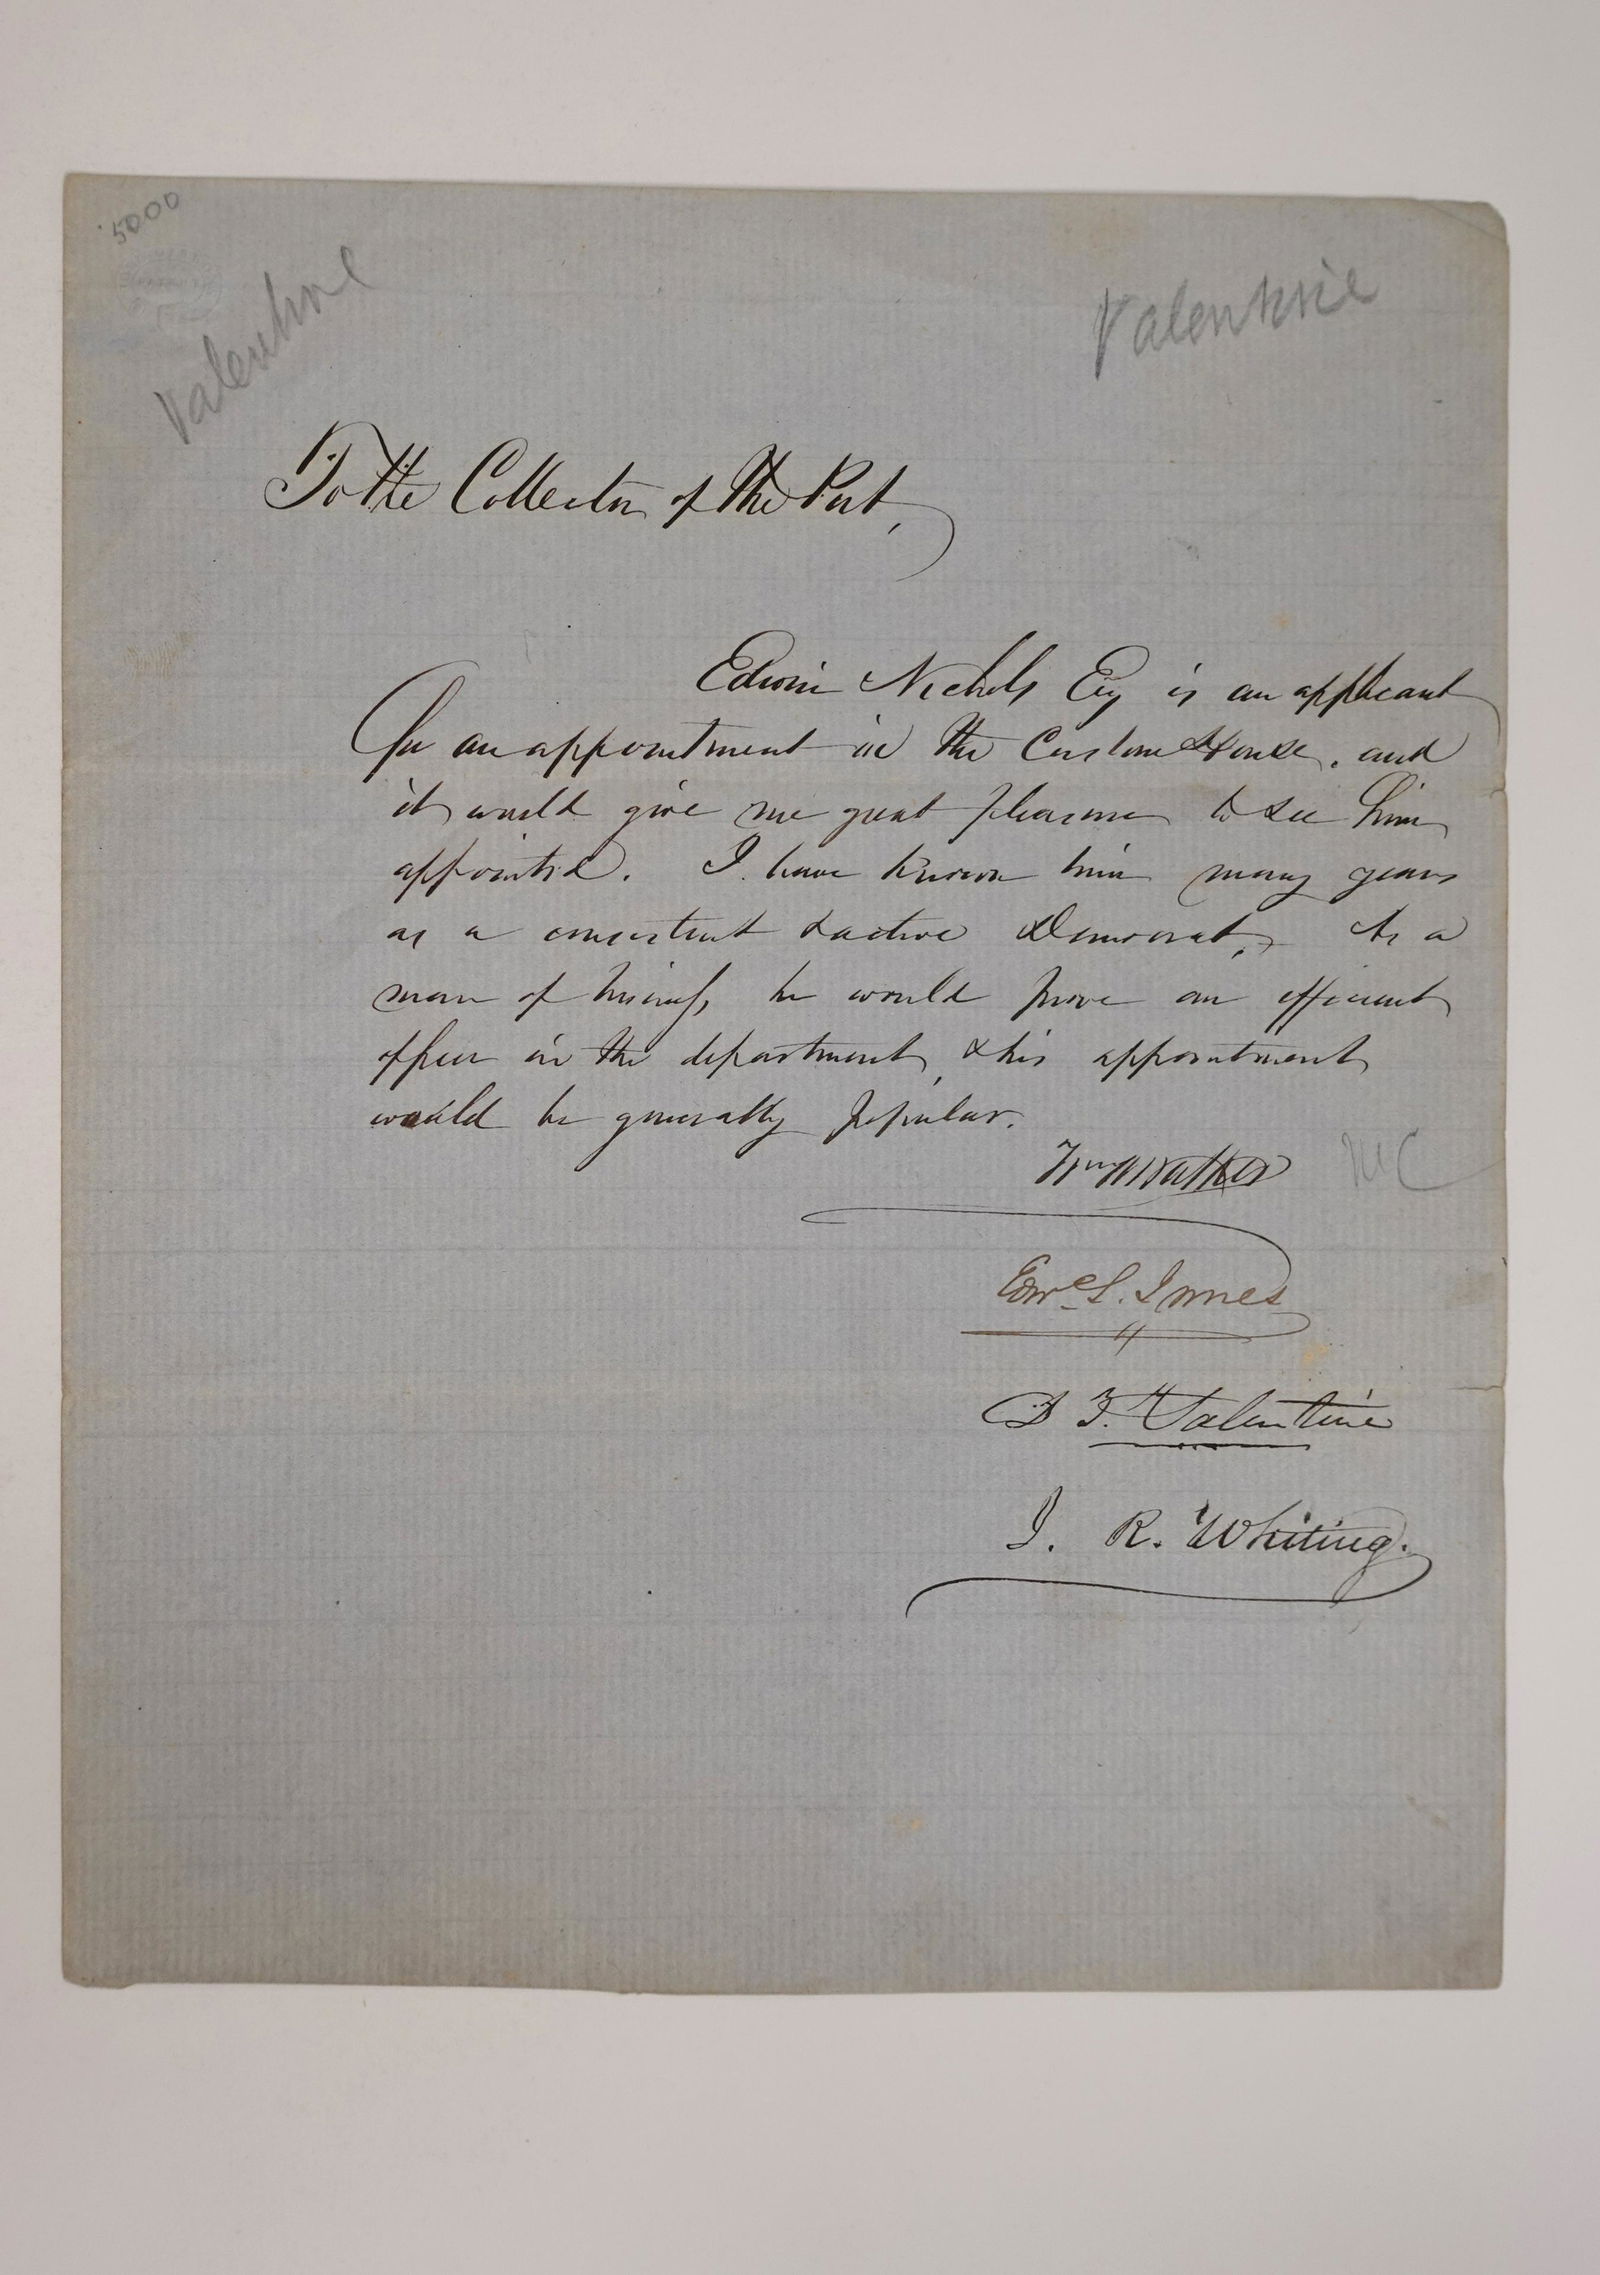 5000
Valentine
Valentine
To the Collector of the Port,
Edwin Nichols Esq is an applicant
for an appointment in the Custom House, and
it would give me great pleasure to see him
appointed. I have known him many years
as a consistent & active Democrat, As a
man of business, he would prove an efficient
officer in the department, & his appointment
would be generally popular.
Wm
MC
Edwd. L. Innes
D T. Valentine
J. R. Whiting.